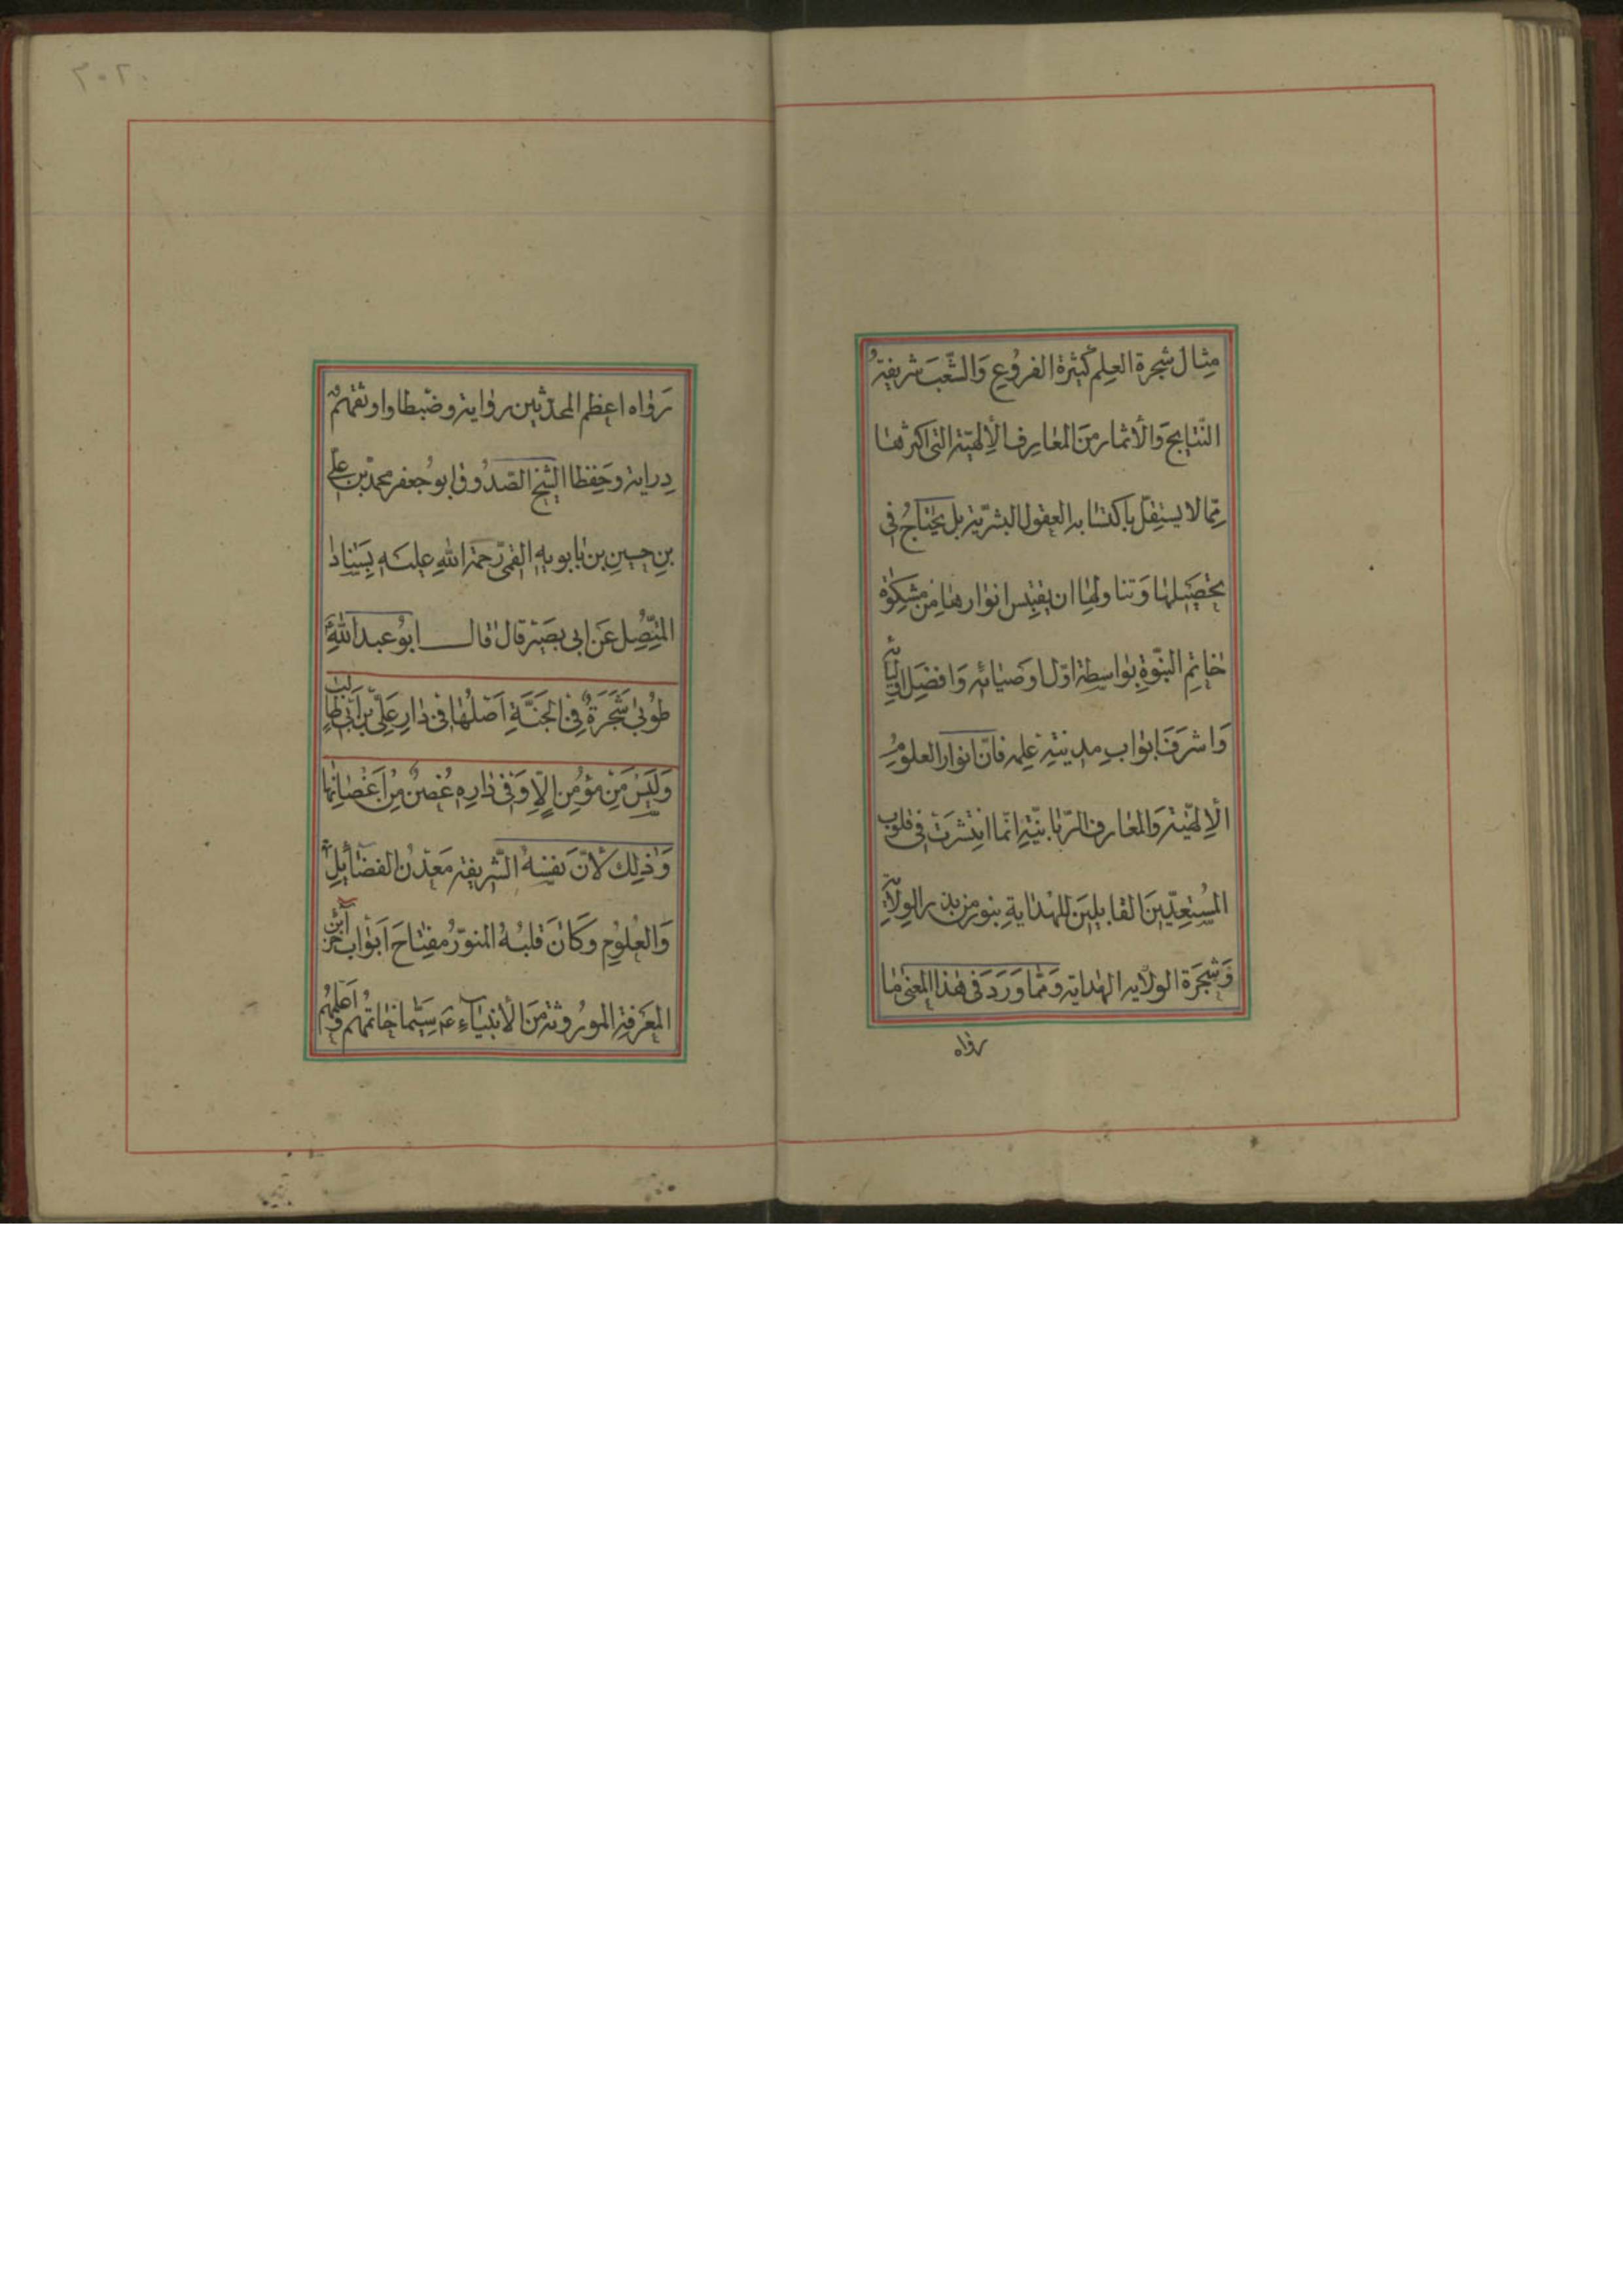 مِثال شجرة العِلم كثيرة الفروُعِ وَالشّعَبَ شريفةُ
النّتايج وَالأثمار مِنَ المعٰارِف الأِلهيّة التى اكثرهٰا
مِمّا لا يستِقلّ بِاكتسٰابه العقول البشريّة بل يحتٰاجُ فى
تحصيلهٰا وَتناولهٰا ان يقتبِس انوٰارهٰا مِن مشكوٰة
خٰاتِم النبّوةِ بوٰاسِطة اوّل اوصيٰائه وَافضل اوليٰائه
وَاشرَف ابوٰاب مدينةِ عِلمه فانّ انوٰار العلومُ
الأِلهيّة وَالمعٰارف الرّبٰانيّةِ انّما انتشرت فى قلوب
المُستعِدّينَ القٰابلينَ للهدٰايةِ بنور من بذر الوِلاٰيةِ
وَشجَرَة الوِلاٰيه الهدٰاية وَممّا وَرَدَ فى هٰذا المعنى مٰا
روٰاه
رَوٰاه اعظم المحدّثين روٰاية وضبطا واوثقهمُ
دِراية وَحِفظا الشيخ الصّدُوق ابوُجعفر محمّد بن على
بنِ حسينِ بن بٰابويه القمّى رحمة اللهِ عليه بسنٰاد
المتّصِل عَن ابى بصَير قال قال ابوُ عبداللهِ
طوُبىٰ شَجَرَةٌ فِى الجَنَّةِ اَصلُهٰا فى دٰارِ عَلِىّ بن اَبى طٰالِب
وَلَيسَ مِن مؤُمِن اِلّا وَفى دٰارِهِ غُصنٌ مِن اَغصٰانِهٰا
وَذٰلِك لأَنّ نفسَهُ الشّريفة مَعدنُ الفضٰائِلِ
وَالعُلوُمِ وَكَانَ قلبُهُ المنوّرُ مفتٰاحَ اَبوٰاب خزٰائن
المَعرَفةِ المورُوثة مِنَ الأنبيٰاءِ سيّما خٰاتمهم وَاَعلمهُم